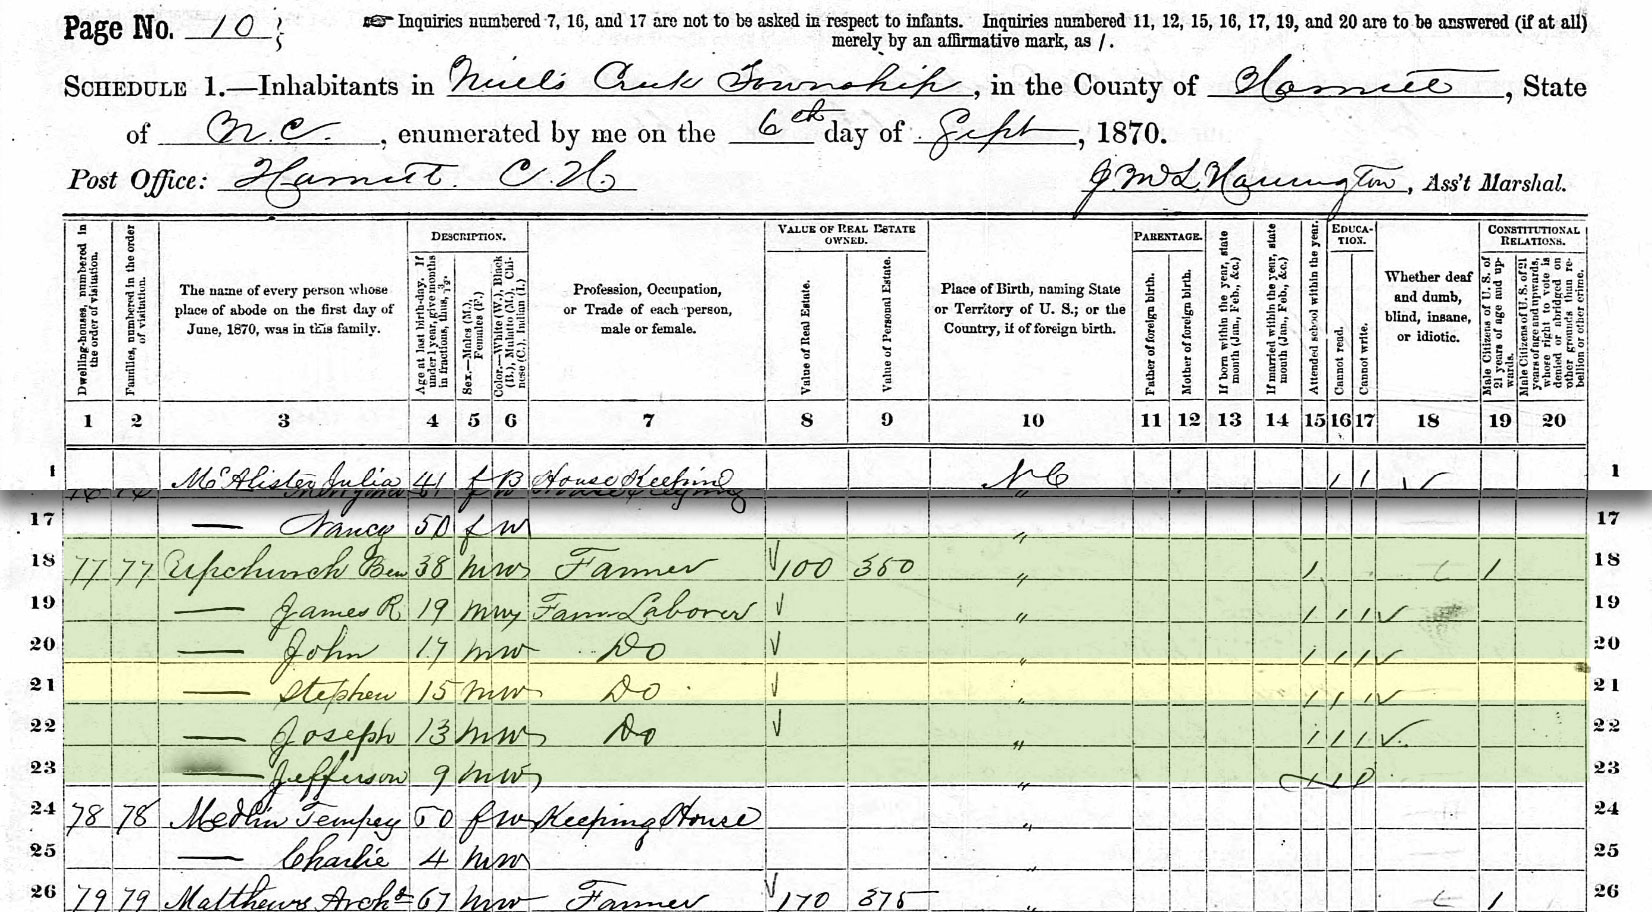 Page No. 10
☞ Inquiries numbered 7, 16, and 17 are not to be asked in respect to infants. Inquiries numbered 11, 12, 15, 16, 17, 19, and 20 are to be answered (if at all)
merely by an affirmative mark, as /.
SCHEDULE 1.—Inhabitants in Neills Creek Township, in the County of Harnett, State
of N.C., enumerated by me on the 6th day of Sept, 1870.
Post Office: Harnett C.H. J McL Harrington, Ass't Marshal.
Dwelling-houses, numbered in the order of visitation.
Families, numbered in the order of visitation.
The name of every person whose place of abode on the first day of June, 1870, was in this family.
DESCRIPTION.
Age at last birth-day. If under 1 year, give months in fractions, thus, 3/12.
Sex.—Males (M.), Females (F.)
Color.—White (W.), Black (B.), Mulatto (M.), Chinese (C.), Indian (I.)
Profession, Occupation, or Trade of each person, male or female.
VALUE OF REAL ESTATE OWNED.
Value of Real Estate.
Value of Personal Estate.
Place of Birth, naming State or Territory of U. S.; or the Country, if of foreign birth.
PARENTAGE.
Father of foreign birth.
Mother of foreign birth.
If born within the year, state month (Jan., Feb., &c.)
If married within the year, state month (Jan., Feb., &c.)
Attended school within the year.
EDUCATION.
Cannot read.
Cannot write.
Whether deaf and dumb, blind, insane, or idiotic.
CONSTITUTIONAL RELATIONS.
Male Citizens of U. S. of 21 years of age and upwards.
Male Citizens of U. S. of 21 years of age and upwards, where right to vote is denied or abridged on other grounds than rebellion or other crime.
1 2 3 4 5 6 7 8 9 10 11 12 13 14 15 16 17 18 19 20
1 McAlister Julia 41 f B House Keeping N C / / ✓ 1
17 — Nancy 50 f w " 17
18 77 77 Upchurch Ben 38 m w Farmer ✓ 100 350 " / / 18
19 — James R 19 m w Farm Laborer ✓ " / / / ✓ 19
20 — John 17 m w Do ✓ " / / / ✓ 20
21 — Stephen 15 m w Do ✓ " / / / ✓ 21
22 — Joseph 13 m w Do ✓ " / / / ✓ 22
23 — Jefferson 9 m w " 23
24 78 78 Medlin Tempey 50 f w Keeping House " 24
25 — Charlie 4 m w " 25
26 79 79 Matthews Arch 67 m w Farmer ✓ 170 375 " / 26